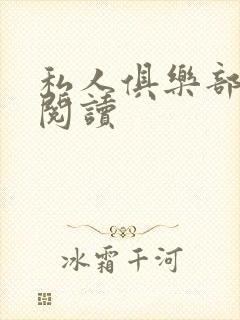 私人俱樂部
閱讀
冰霜千河